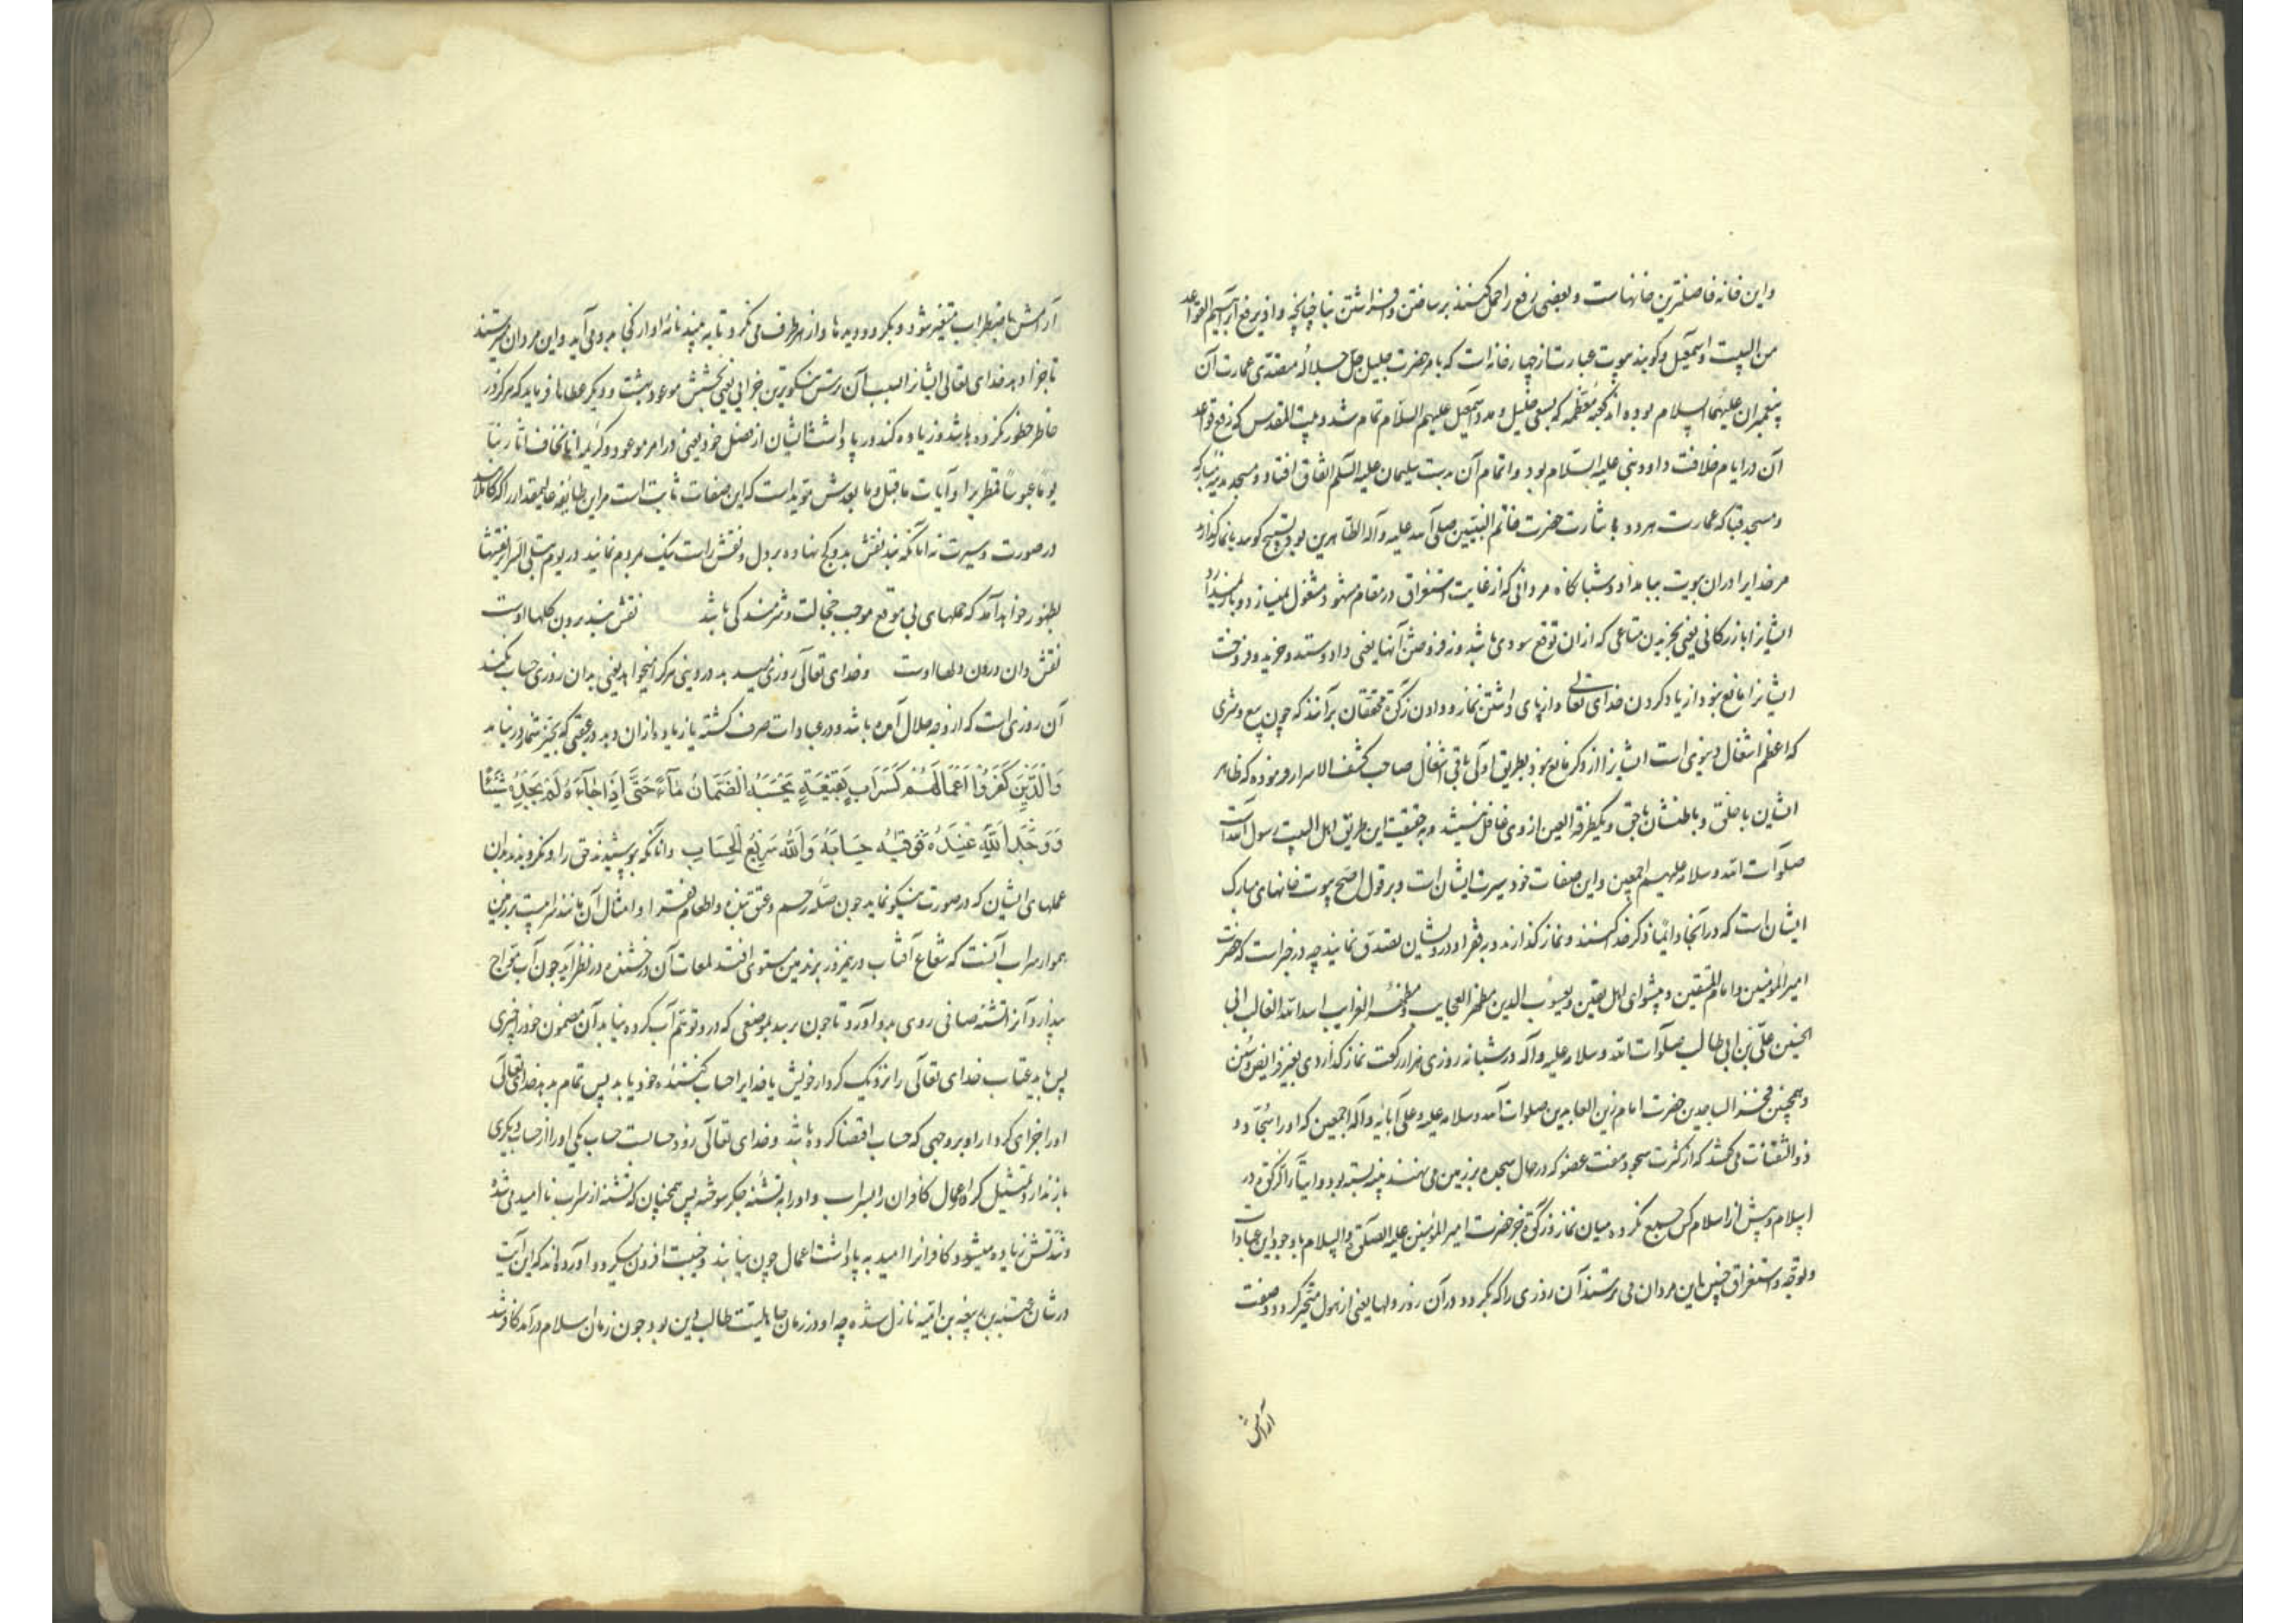 واین خانه فاضلترین خانهاست و بعضی رفع را حمل کنند بر ساختن و افراشتن بنا چنانچه واذ یرفع ابرهیم القواعد
من البیت واسمعیل و گویند بیوت عبارت از چهار خانه است که بامر حضرت جلیل جل جلاله متصدی عمارت آن
پیغمبران علیهما السلام بوده اند کعبه معظمه که بسعی خلیل و مدد اسمعیل علیهم السلام تمام شد و بیت المقدس که رفع قواعد
آن در ایام خلافت داود نبی علیه السلام بود و اتمام آن بدست سلیمان علیه السلم اتفاق افتاد و مسجد مدینه مبارکه
و مسجد قبا که عمارت هر دو به اشارت حضرت خاتم النبیین صلی الله علیه وآله الطاهرین بود تسبیح گویند یا نماز گذارند
مر خدایرا در ان بیوت ببامداد و شبانگاه مردانی که از غایت استغراق در مقام شهود مشغول نمیسازد و باز نمیدارد
ایشانرا بازرگانی یعنی بخریدن متاعی که ازان توقع سودی باشد و نه فروختن آنها یعنی داد و ستد و خرید و فروخت
ایشانرا مانع نبود از یاد کردن خدای تعالی و از بپای داشتن نماز و دادن زکوة محققان برآنند که چون بیع و شری
که اعظم اشغال دنیوی است ایشانرا از ذکر مانع نبود بطریق اولی باقی اشغال صاحب کشف الاسرار فرموده که ظاهر
ایشان با خلق و باطنشان با حق و یکطرفة العین از وی غافل نیستند و به حقیقت این طریق اهل البیت رسول الله است
صلوات الله وسلامه علیهم اجمعین واین صفات خود سیرت ایشان است و بر قول اصح بیوت خانهای مبارک
ایشان است که در آنجا دائما ذکر خدا کنند و نماز گذارند و بر فقرا و درویشان تصدق نمایند چه در خبر است که حضرت
امیر المؤمنین و امام المتقین و پیشوای اهل یقین و یعسوب الدین مظهر العجایب ومظهر الغرایب اسد الله الغالب ابی
الحسنین علی بن ابی طالب صلوات الله وسلامه علیه وآله در شبانه روزی هزار رکعت نماز گذاردی بغیر فرایض و سنن
و همچنین فخر الساجدین حضرت امام زین العابدین صلوات الله وسلامه علیه وعلی آبائه وآله اجمعین که او را سجاد و
ذو الثفنات می گفتند که از کثرت سجود هفت عضو که در حال سجده بر زمین می نهند پینه بسته بود و ایتآء الزکوة در
اسلام و پیش از اسلام کس جمع نکرده میان نماز و زکوة جز حضرت امیر المؤمنین علیه الصلوة والسلام با وجود این عبادات
و توجه و استغراق چنین این مردان می ترسند آن روزی را که بگردد در آن روز دلها یعنی از هول متحیر گردد و صفت
آرامش
آرامش باضطراب متغیر شود و بگردد دیدها و از هر طرف می نگرد تا به بیند نامه او از کجا بدو می آید واین مردان میترسند
تا جزا دهد خدای تعالی ایشانرا بسبب آن ترس نیکوترین جزایی یعنی بخشش موعود بهشت و دیگر عطاها فرماید که هرگز در
خاطر خطور نکرده باشد و زیاده کند در پاداشت ایشان از فضل خود یعنی ورا امر موعود و کریمه انا نخاف من ربنا
یوما عبوسا قمطریرا و آیات ما قبل و ما بعدش مؤید است که این صفات ثابت است مر این طایفه عالیمقدار را که کاملند
در صورت و سیرت نه آنانکه نقش بد و کج نهاده بر دل و نقش راست نیک بمردم نمایند در یوم تبلی السرائر
بظهور خواهد آمد که عملهای بی موقع موجب خجالت و شرمندگی باشد نقش بند برون گلها اوست
نقش دان درون دلها اوست و خدای تعالی روزی میدهد در دینی هر کرا میخواهد یعنی بدان روزی حساب نکند
آن روزی است که از وجه حلال آمده باشد و در عبادات صرف گشته یا زیاده ازان دهد در عقبی که بحیز شمار در نیاید
وَالَّذِینَ کَفَرُوا اَعْمَالُهُمْ کَسَرَابٍ بِقِیعَةٍ یَحْسَبُهُ الضَّمْانُ مآءً حَتَّی اِذَا جَآءَهُ لَمْ یَجِدْهُ شَیْئًا
وَوَجَدَ اللهَ عِنْدَهُ فَوَفّیهُ حِسَابَهُ وَاللهُ سَرِیعُ الْحِسَابِ و آنانکه پوشیدند حق را و نگرویدند بدان
عملهای ایشان که در صورت نیکو نماید چون صله رحم و عتق بنده و اطعام فقرا و امثال آن مانند سرابیست بر زمین
هموار سراب آنست که شعاع آفتاب در نیمروز بر زمین مستوی افتد لمعات آن درخشنده در نظر آید چون آب مواج
پندارد آنرا تشنه صافی روی بدو آورد تا چون برسد بموضعی که در و توهم آب کرده نیابد آن مضمون خود را چیزی
پس یابد عقاب خدای تعالی را نزدیک کردار خویش یا خدایرا حساب کننده خود یابد پس تمام بدهد خدای تعالی
او را جزای کردار او بر وجهی که حساب اقتضا کرده باشد و خدای تعالی زود حسابست حساب یکی او را از حساب دیگری
باز ندارد تمثیل کرد اعمال کافران را بسراب و او را به تشنه جگر سوخته پس همچنان که تشنه از سراب نا امید می شود
و شدتش زیاده میشود کافرانرا امید به پاداشت اعمال چون نیابند وخیبت افزون میگردد آورده اند که این آیت
در شان عتبه بن ربیعه بن امیه نازل شده چه او در زمان جاهلیت طالب دین بود چون زمان اسلام در آمد کافر شد